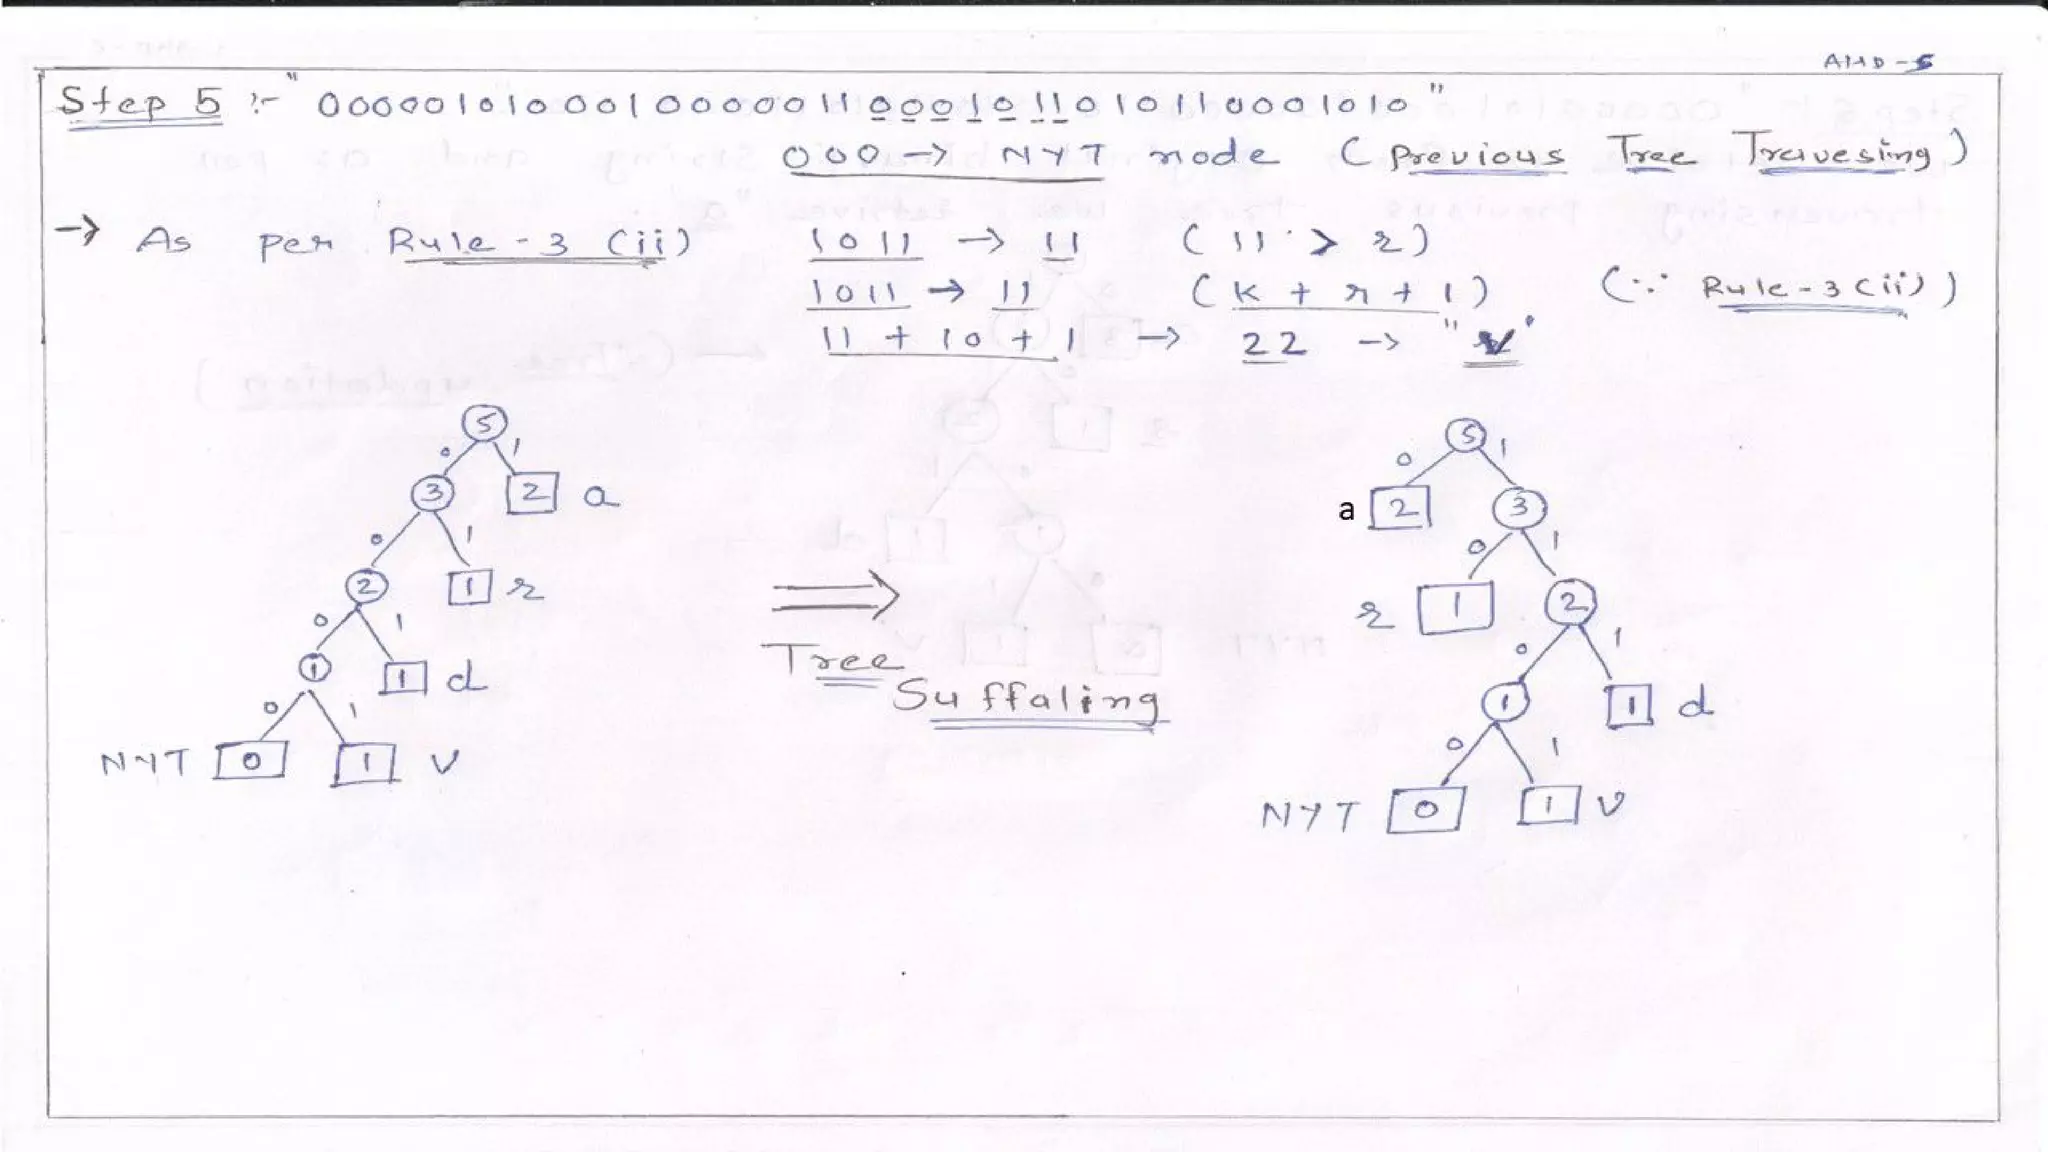 AHD-5
Step 5 :- "00000101000100000110001011010110001010"
000 → NYT node (Previous Tree Travesing)
→ As per Rule-3 (ii) 1011 → 11 (11 > r)
1011 → 11 (k + r + 1) (∵ Rule-3 (ii))
11 + 10 + 1 → 22 → "v"
5
0 1
3 2 a
0 1
2 1 r
0 1
1 1 d
0 1
NYT 0 1 v
⇒
Tree
Suffaling
5
0 1
a 2 3
0 1
r 1 2
0 1
1 1 d
0 1
NYT 0 1 v